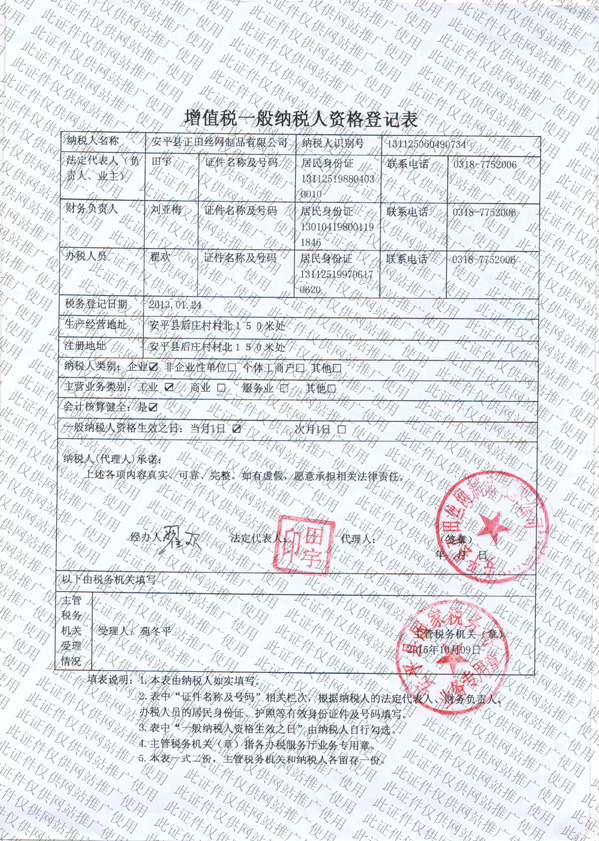 增值税一般纳税人资格登记表
纳税人名称 安平县正田丝网制品有限公司 纳税人识别号 131125060490734
法定代表人（负责人、业主） 田宇 证件名称及号码 居民身份证 联系电话 0318-7752006
13112519880403
0010
财务负责人 刘亚梅 证件名称及号码 居民身份证 联系电话 0318-7752006
13010419800119
1846
办税人员 翟欢 证件名称及号码 居民身份证 联系电话 0318-7752006
13112519970617
0620
税务登记日期 2013.01.24
生产经营地址 安平县后庄村村北150米处
注册地址 安平县后庄村村北150米处
纳税人类别：企业☑ 非企业性单位□ 个体工商户□ 其他□
主营业务类别：工业☑ 商业□ 服务业□ 其他□
会计核算健全：是☑
一般纳税人资格生效之日：当月1日☑ 次月1日□
纳税人(代理人)承诺：
上述各项内容真实、可靠、完整。如有虚假，愿意承担相关法律责任。
经办人： 法定代表人： 代理人： （签章）
田宇印
年 月 日
以下由税务机关填写
主管税务机关受理情况 受理人：苑冬平 主管税务机关（章）
2015年10月09日
填表说明：1.本表由纳税人如实填写。
2.表中“证件名称及号码”相关栏次，根据纳税人的法定代表人、财务负责人、
办税人员的居民身份证、护照等有效身份证件及号码填写。
3.表中“一般纳税人资格生效之日”由纳税人自行勾选。
4.主管税务机关（章）指各办税服务厅业务专用章。
5.本表一式二份，主管税务机关和纳税人各留存一份。
此证件仅供网站推广使用